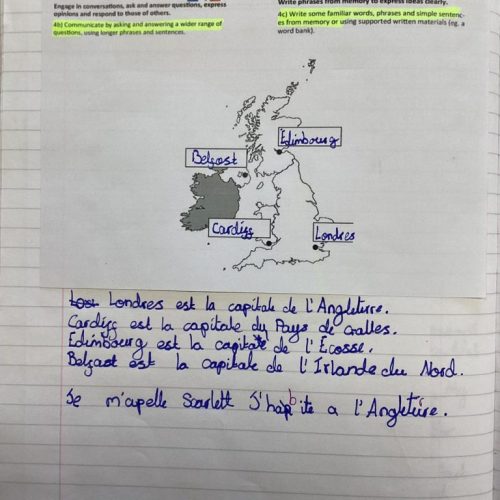 Engage in conversations, ask and answer questions, express
opinions and respond to those of others.
4b) Communicate by asking and answering a wider range of
questions, using longer phrases and sentences.
Write phrases from memory to express ideas clearly.
4c) Write some familiar words, phrases and simple sentenc-
es from memory or using supported written materials (eg. a
word bank).
Edimbourg
Belfast
Cardiff
Londres
Londres est la capitale de l'Angleterre.
Cardiff est la capitale du Pays de Galles.
Edimbourg est la capitale de l'Ecosse.
Belfast est la capitale de l'Irlande du Nord.
Je m'apelle Scarlett J'habite a l'Angleterre.